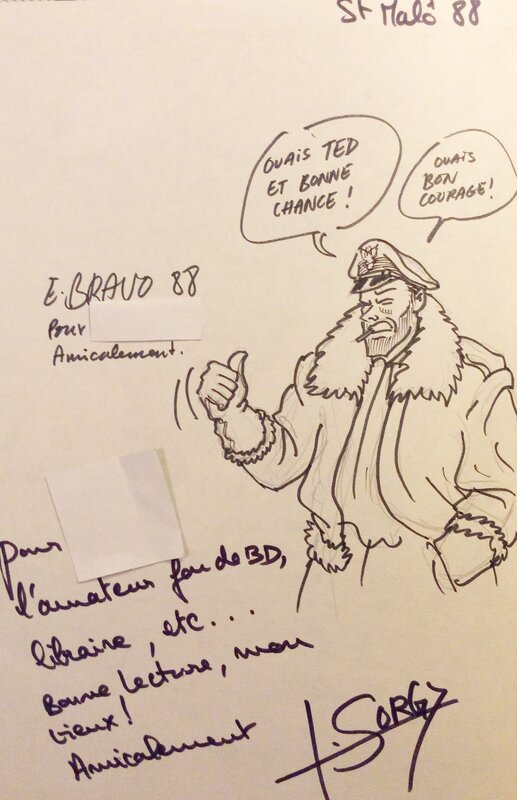 St Malô 88
OUAIS TED
ET BONNE
CHANCE !
OUAIS
BON
COURAGE!
E.BRAVO 88
Pour
Amicalement.
Pour
l'amateur fou de BD,
libraire, etc...
Bonne Lecture, mon
vieux!
Amicalement
J. SORG